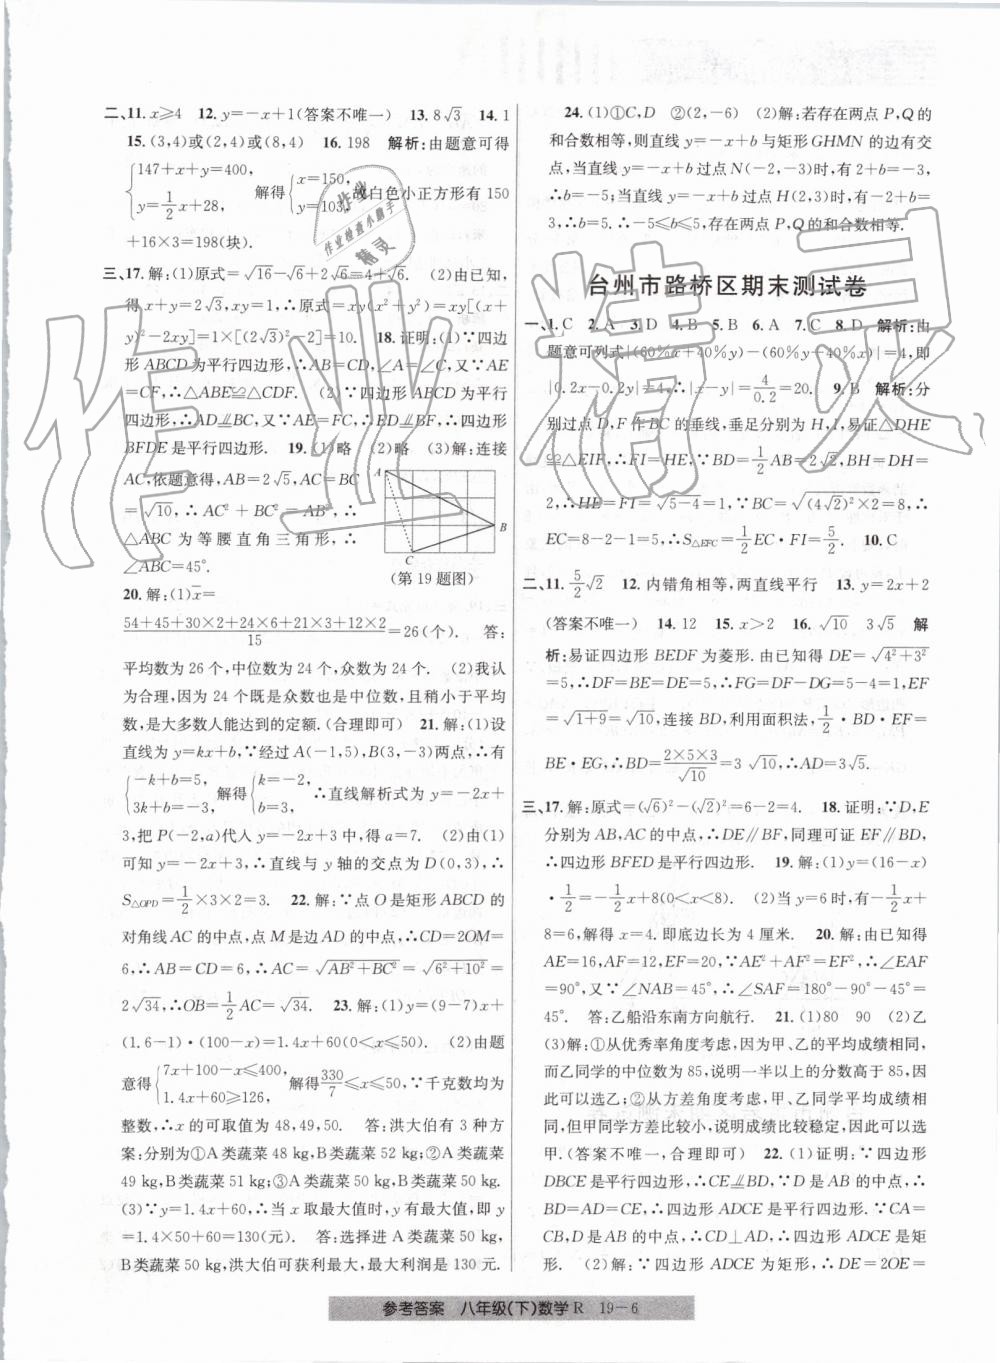 二、11. x⩾4 12. y=-x+1(答案不唯一) 13. 8√3 14. 1
15. (3,4)或(2,4)或(8,4) 16. 198 解析:由题意可得
{147+x+y=400, y=1/2x+28, 解得{x=150, y=103, 故白色小正方形有 150
+16×3=198(块).
三、17. 解:(1)原式=√16-√6+2√6=4+√6. (2)由已知,
得 x+y=2√3,xy=1,∴原式=xy(x²+y²)=xy[(x+
y)²-2xy]=1×[(2√3)²-2]=10. 18. 证明:(1)∵四边
形 ABCD 为平行四边形,∴AB=CD,∠A=∠C,又∵AE
=CF,∴△ABE≌△CDF. (2)∵四边形 ABCD 是平行
四边形,∴AD⫽BC,又∵AE=FC,∴ED⫽BF,∴四边形
BFDE 是平行四边形. 19. (1)略 (2)略 (3)解:连接
AC,依题意得,AB=2√5,AC=BC
=√10,∴AC²+BC²=AB²,∴
△ABC 为等腰直角三角形,∴
∠ABC=45°.
A
B
C
(第 19 题图)
20. 解:(1)x̄=
(54+45+30×2+24×6+21×3+12×2)/15=26(个). 答:
平均数为 26 个,中位数为 24 个,众数为 24 个. (2)我认
为合理,因为 24 个既是众数也是中位数,且稍小于平均
数,是大多数人能达到的定额.(合理即可) 21. 解:(1)设
直线为 y=kx+b,∵经过 A(-1,5),B(3,-3)两点,∴有
{-k+b=5, 3k+b=-3, 解得{k=-2, b=3. ∴直线解析式为 y=-2x+
3,把 P(-2,a)代入 y=-2x+3 中,得 a=7. (2)由(1)
可知 y=-2x+3,∴直线与 y 轴的交点为 D(0,3),∴
S△OPD=1/2×3×2=3. 22. 解:∵点 O 是矩形 ABCD 的
对角线 AC 的中点,点 M 是边 AD 的中点,∴CD=2OM=
6,∴AB=CD=6,∴AC=√(AB²+BC²)=√(6²+10²)=
2√34,∴OB=1/2AC=√34. 23. 解:(1)y=(9-7)x+
(1.6-1)·(100-x)=1.4x+60(0<x⩽50). (2)由题
意得{7x+100-x⩽400, 1.4x+60⩾126, 解得330/7⩽x⩽50. ∵千克数均为
整数,∴x 的可取值为 48,49,50. 答:洪大伯有 3 种方
案:分别为①A 类蔬菜 48 kg,B 类蔬菜 52 kg;②A 类蔬
菜 49 kg,B 类蔬菜 51 kg;③A 类蔬菜 50 kg,B 类蔬菜 50 kg.
(3)∵y=1.4x+60,∴当 x 取最大值时,y 有最大值,即 y
=1.4×50+60=130(元). 答:选择进 A 类蔬菜 50 kg,
B 类蔬菜 50 kg,洪大伯可获利最大,最大利润是 130 元.
24. (1)①C,D ②(2,-6) (2)解:若存在两点 P,Q 的
和合数相等,则直线 y=-x+b 与矩形 GHMN 的边有交
点,当直线 y=-x+b 过点 N(-2,-3)时,有 2+b=-3,
∴b=-5;当直线 y=-x+b 过点 H(2,3)时,有-2+b=
3,∴b=5. ∴-5⩽b⩽5,存在两点 P,Q 的和合数相等.
台州市路桥区期末测试卷
一、1. C 2. A 3. D 4. B 5. B 6. A 7. C 8. D 解析:由
题意可列式|(60%x+40%y)-(60%y+40%x)|=4,即
|0.2x-0.2y|=4,∴|x-y|=4/0.2=20. 9. B 解析:分
别过点 D,F 作 BC 的垂线,垂足分别为 H,I,易证△DHE
≌△EIF,∴FI=HE,∵BD=1/2AB=2√2,BH=DH=
2,∴HE=FI=√(5-4)=1,∵BC=√((4√2)²×2)=8,∴
EC=8-2-1=5,∴S△EFC=1/2EC·FI=5/2. 10. C
二、11. 5/2√2 12. 内错角相等,两直线平行 13. y=2x+2
(答案不唯一) 14. 12 15. x>2 16. √10 3√5 解
析:易证四边形 BEDF 为菱形.由已知得 DE=√(4²+3²)
=5,∴DF=BE=DE=5,∴FG=DF-DG=5-4=1,EF
=√(1+9)=√10,连接 BD,利用面积法,1/2·BD·EF=
BE·EG,∴BD=(2×5×3)/√10=3√10,∴AD=3√5.
三、17. 解:原式=(√6)²-(√2)²=6-2=4. 18. 证明:∵D,E
分别为 AB,AC 的中点,∴DE∥BF,同理可证 EF∥BD,
∴四边形 BFED 是平行四边形. 19. 解:(1)y=(16-x)
·1/2=-1/2x+8(0<x<8). (2)当 y=6 时,有-1/2x+
8=6,解得 x=4.即底边长为 4 厘米. 20. 解:由已知得
AE=16,AF=12,EF=20,∵AE²+AF²=EF²,∴∠EAF
=90°,又∵∠NAB=45°,∴∠SAF=180°-90°-45°=
45°. 答:乙船沿东南方向航行. 21. (1)80 90 (2)乙
(3)解:①从优秀率角度考虑,因为甲、乙的平均成绩相同,
而乙同学的中位数为 85,说明一半以上的分数高于 85,因
此可以选乙;②从方差角度考虑,甲、乙同学平均成绩相
同,但甲同学方差比较小,说明甲比较稳定,因此可以选
甲.(答案不唯一,合理即可) 22. (1)证明:∵四边形
DBCE 是平行四边形,∴CE⫽BD,∵D 是 AB 的中点,∴
BD=AD=CE,∴四边形 ADCE 是平行四边形,又∵CA=
CB,D 是 AB 中点,∴CD⊥AD,∴四边形 ADCE 是矩
形. (2)解:∵四边形 ADCE 为矩形,∴DE=2OE=
参考答案 八年级(下)数学 R 19-6
作业
作业检查小助手
精灵
作业精灵